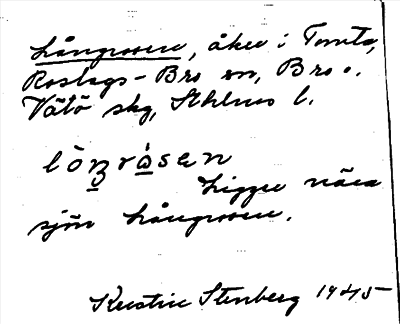 Långrosen, åker i Tomta,
Roslags-Bro sn, Bro o.
Vätö skg, Sthlms l.
lȯn̠rȧ̠sen
Ligger nära
sjön Långrosen.
Kerstin Stenberg 1945